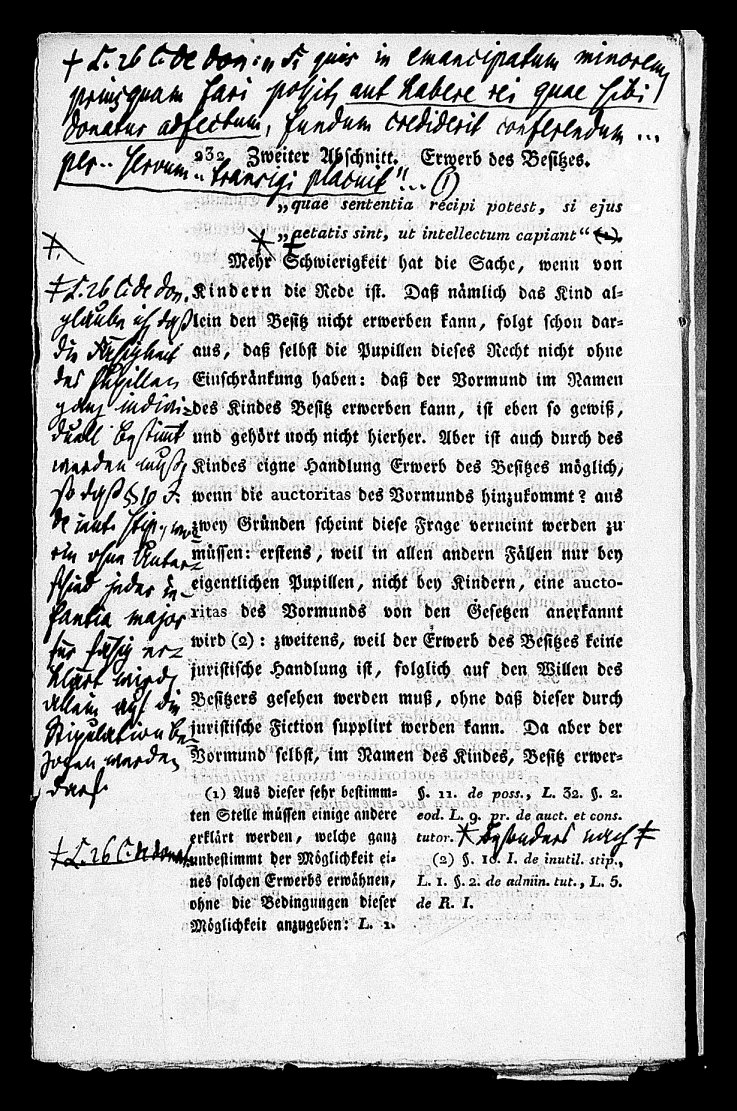 ‡ L. 26 C. de don: „Si quis in emancipatum minorem
priusquam fari possit, aut habere rei quae sibi
donatur adfectum, fundum crediderit conferendum ...
per .. servum .. transigi placuit" ... (1)
232 Zweiter Abschnitt. Erwerb des Besitzes.
„quae sententia recipi potest, si ejus
„aetatis sint, ut intellectum capiant“ (1).
Mehr Schwierigkeit hat die Sache, wenn von
Kindern die Rede ist. Daß nämlich das Kind al-
lein den Besitz nicht erwerben kann, folgt schon dar-
aus, daß selbst die Pupillen dieses Recht nicht ohne
Einschränkung haben: daß der Vormund im Namen
des Kindes Besitz erwerben kann, ist eben so gewiß,
und gehört noch nicht hierher. Aber ist auch durch des
Kindes eigne Handlung Erwerb des Besitzes möglich,
wenn die auctoritas des Vormunds hinzukommt? aus
zwey Gründen scheint diese Frage verneint werden zu
müssen: erstens, weil in allen andern Fällen nur bey
eigentlichen Pupillen, nicht bey Kindern, eine aucto-
ritas des Vormunds von den Gesetzen anerkannt
wird (2): zweitens, weil der Erwerb des Besitzes keine
juristische Handlung ist, folglich auf den Willen des
Besitzers gesehen werden muß, ohne daß dieser durch
juristische Fiction supplirt werden kann. Da aber der
Vormund selbst, im Namen des Kindes, Besitz erwer-
‡ L. 26 C. de don.
glaube ich daß
die Fähigkeit
des Pupillen
ganz indivi-
duell bestimmt
werden muß,
so daß § 10 J.
de inut. stip., wo-
rin ohne Unter-
schied jeder in-
fantia major
für fähig er-
klärt wird,
allein auf die
Stipulation be-
zogen werden
darf.
‡ L. 26 C. de donat.
(1) Aus dieser sehr bestimm-
ten Stelle müssen einige andere
erklärt werden, welche ganz
unbestimmt der Möglichkeit ei-
nes solchen Erwerbs erwähnen,
ohne die Bedingungen dieser
Möglichkeit anzugeben: L. 1.
§. 11. de poss., L. 32. §. 2.
eod. L. 9. pr. de auct. et cons.
tutor. * besonders nach ‡
(2) §. 10. I. de inutil. stip.,
L. 1. §. 2. de admin. tut., L. 5.
de R. I.